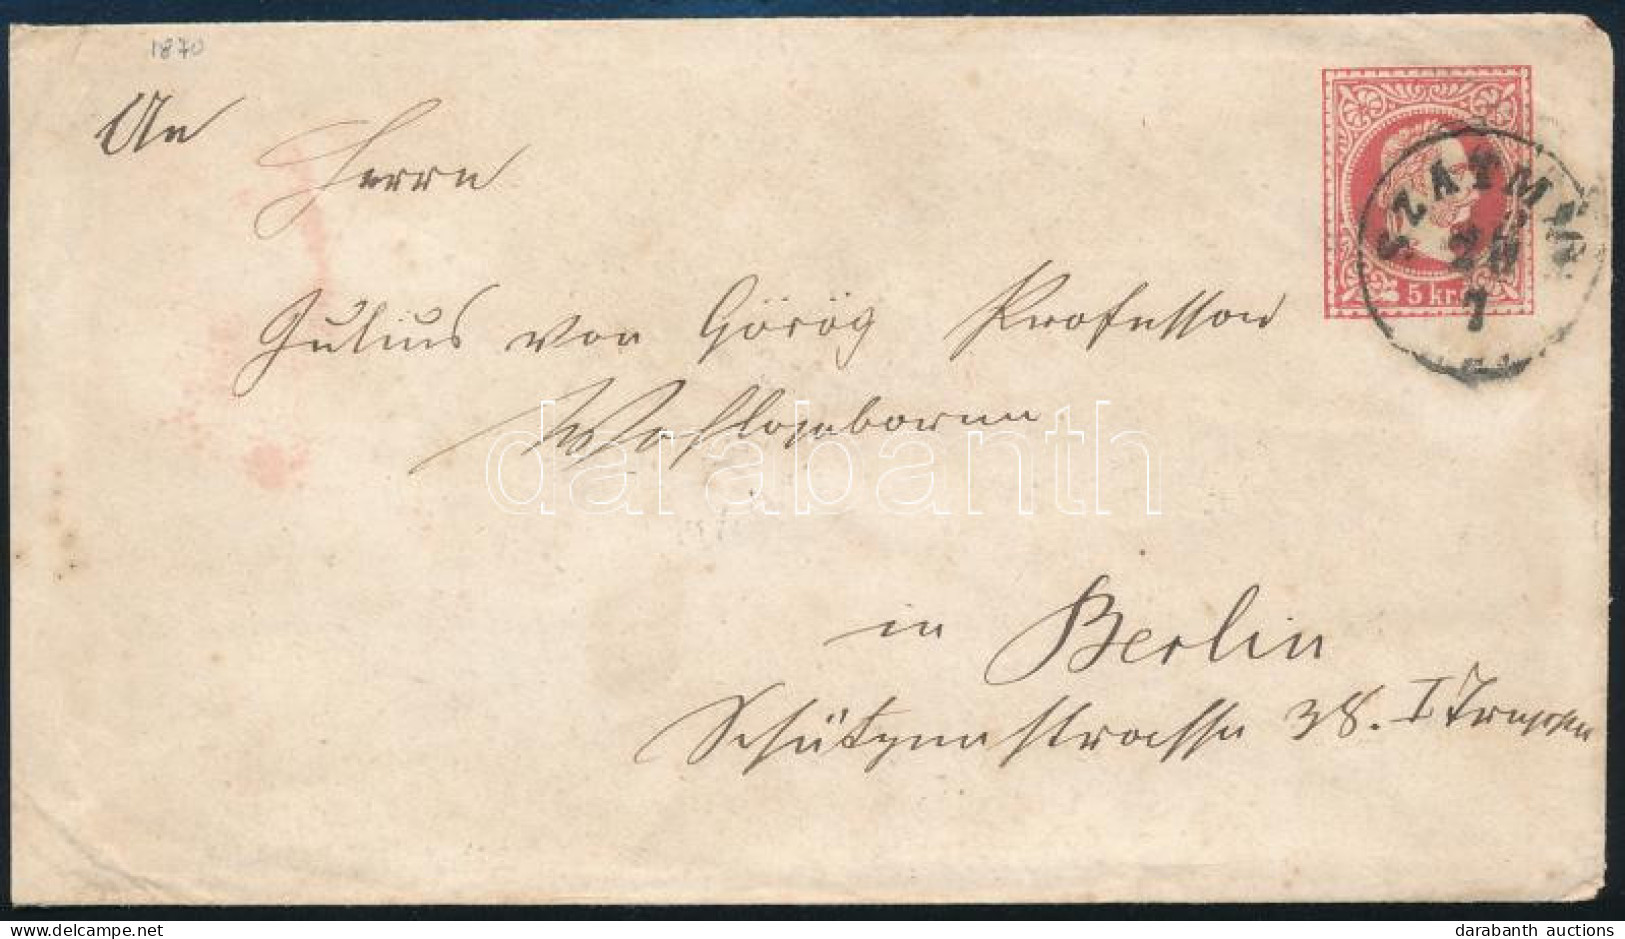 1870
An
Herrn
Julius von Görög Professor
Wohlgeboren
in Berlin
Schützenstrasse 38. I Treppen
5 kr.
SZATMÁR
28
7
darabanth
darabanth auctions